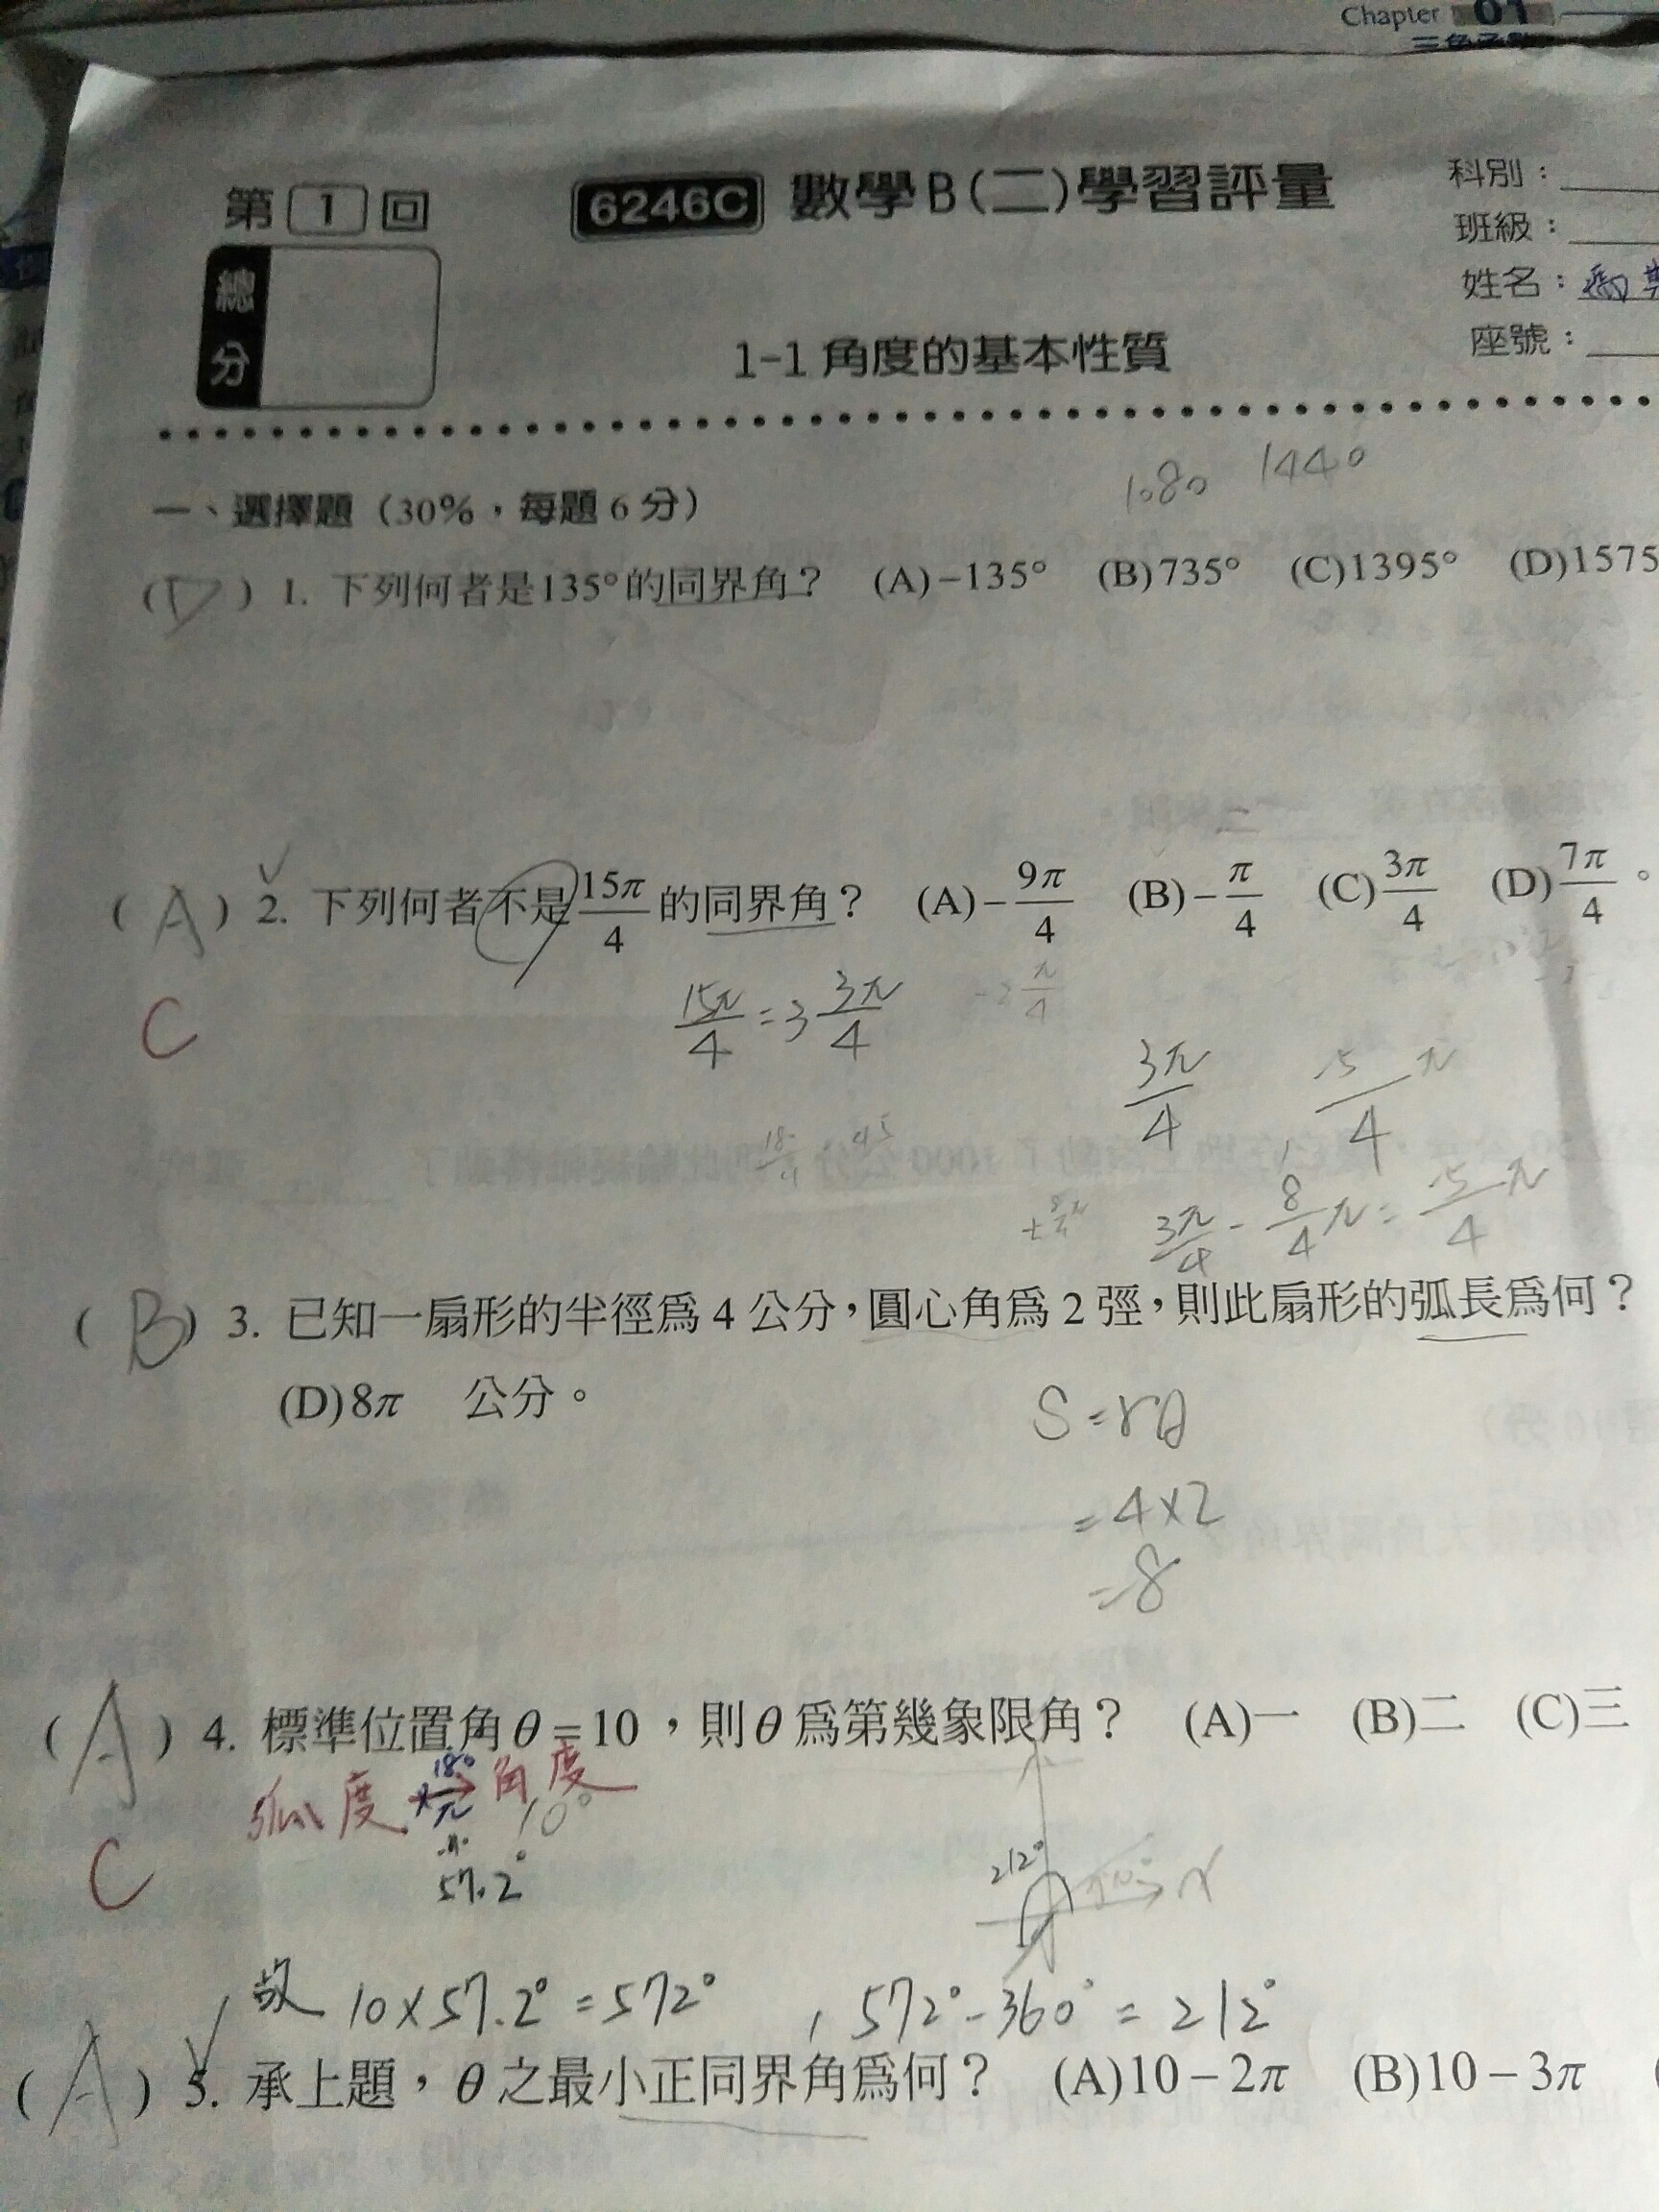 Chapter 01
第 1 回 6246C 數學B(二)學習評量
科別：
班級：
姓名：
座號：
總分
1-1 角度的基本性質
1080 1440
一、選擇題（30%，每題 6 分）
( D ) 1. 下列何者是135°的同界角？ (A)−135° (B)735° (C)1395° (D)1575
( A ) 2. 下列何者不是 15π/4 的同界角？ (A)−9π/4 (B)−π/4 (C)3π/4 (D)7π/4。
C
15π/4 = 3 3π/4 -2 π/4
3π/4 -5/4 π
3π/4 - 8/4 π = -5/4 π
( B ) 3. 已知一扇形的半徑爲 4 公分，圓心角爲 2 弳，則此扇形的弧長爲何？
(D)8π 公分。
S = rθ
= 4×2
= 8
( A ) 4. 標準位置角 θ = 10 ，則 θ 爲第幾象限角？ (A)一 (B)二 (C)三
弧度 × 180/π → 角度
10°
C
57.2°
212°
x
故 10×57.2° = 572° , 572° - 360° = 212°
( A ) 5. 承上題，θ 之最小正同界角爲何？ (A)10 − 2π (B)10 − 3π